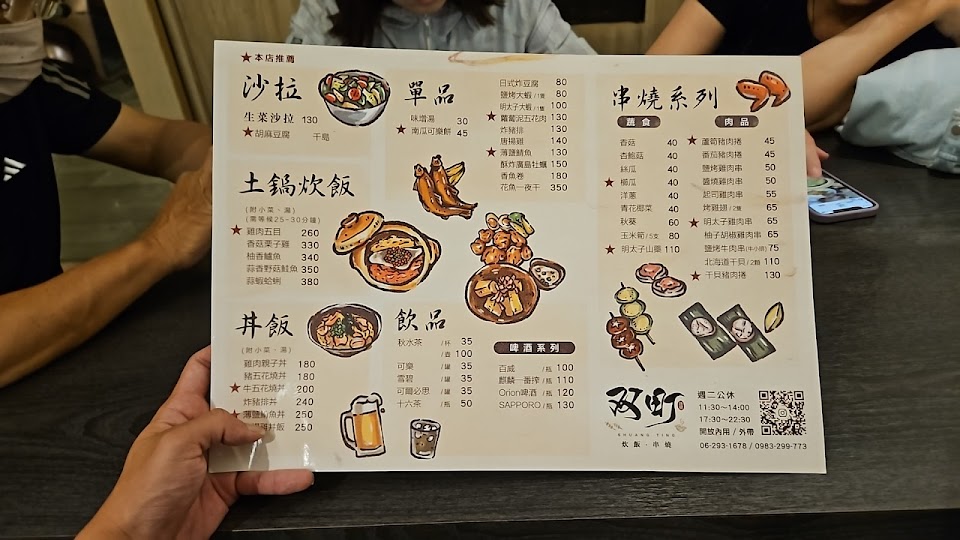 ★本店推薦
沙拉
生菜沙拉 130
★胡麻豆腐
千島
土鍋炊飯
(附小菜、湯)
(需等候25-30分鐘)
★雞肉五目 260
香菇栗子雞 330
柚香鱸魚 340
蒜香野菇鮭魚 350
蒜蝦蛤蜊 380
丼飯
(附小菜、湯)
雞肉親子丼 180
豬五花燒丼 180
★牛五花燒丼 200
炸豬排丼 240
★薄鹽鯖魚丼 250
丼飯 250
單品
味增湯 30
★南瓜可樂餅 45
日式炸豆腐 80
鹽烤大蝦/1隻 80
明太子大蝦/1隻 100
★蘿蔔泥五花肉 130
炸豬排 130
唐揚雞 140
★薄鹽鯖魚 130
酥炸廣島牡蠣 150
香魚卷 180
花魚一夜干 350
飲品
秋水茶 /杯 35
/壺 100
可樂 /罐 35
雪碧 /罐 35
可爾必思 /罐 35
十六茶 /瓶 50
啤酒系列
百威 /瓶 100
麒麟一番搾 /瓶 110
Orion啤酒 /瓶 120
SAPPORO /瓶 130
串燒系列
蔬食
香菇 40
杏鮑菇 40
絲瓜 40
★櫛瓜 40
洋蔥 40
青花椰菜 40
秋葵 60
玉米筍/5支 80
★明太子山藥 110
肉品
★蘆筍豬肉捲 45
番茄豬肉捲 45
鹽烤雞肉串 50
醬燒雞肉串 50
起司雞肉串 55
烤雞翅/2隻 65
★明太子雞肉串 65
柚子胡椒雞肉串 65
鹽烤牛肉串(牛小排) 75
北海道干貝/2顆 110
★干貝豬肉捲 130
双町
SHUANG TING
炊飯・串燒
週二公休
11:30~14:00
17:30~22:30
開放內用 / 外帶
06-293-1678 / 0983-299-773